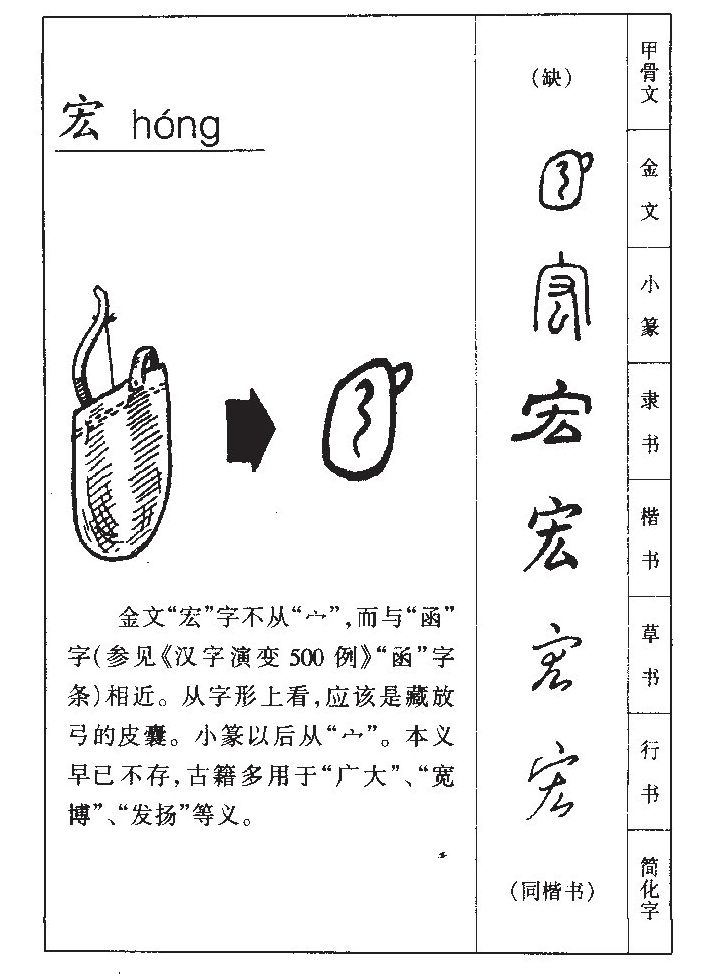 宏 hóng
金文“宏”字不从“宀”,而与“函”
字(参见《汉字演变500例》“函”字
条)相近。从字形上看,应该是藏放
弓的皮囊。小篆以后从“宀”。本义
早已不存,古籍多用于“广大”、“宽
博”、“发扬”等义。
(缺)
宏
宏
宏
宏
(同楷书)
甲骨文
金文
小篆
隶书
楷书
草书
行书
简化字